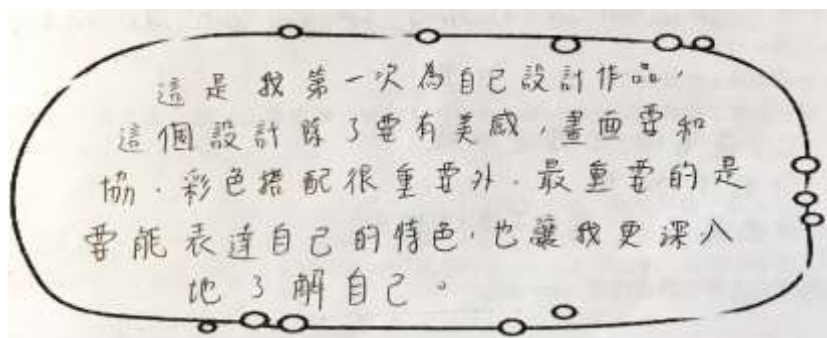 這是我第一次為自己設計作品，
這個設計除了要有美感，畫面要和
協．彩色搭配很重要外．最重要的是
要能表達自己的特色，也讓我更深入
地了解自己。